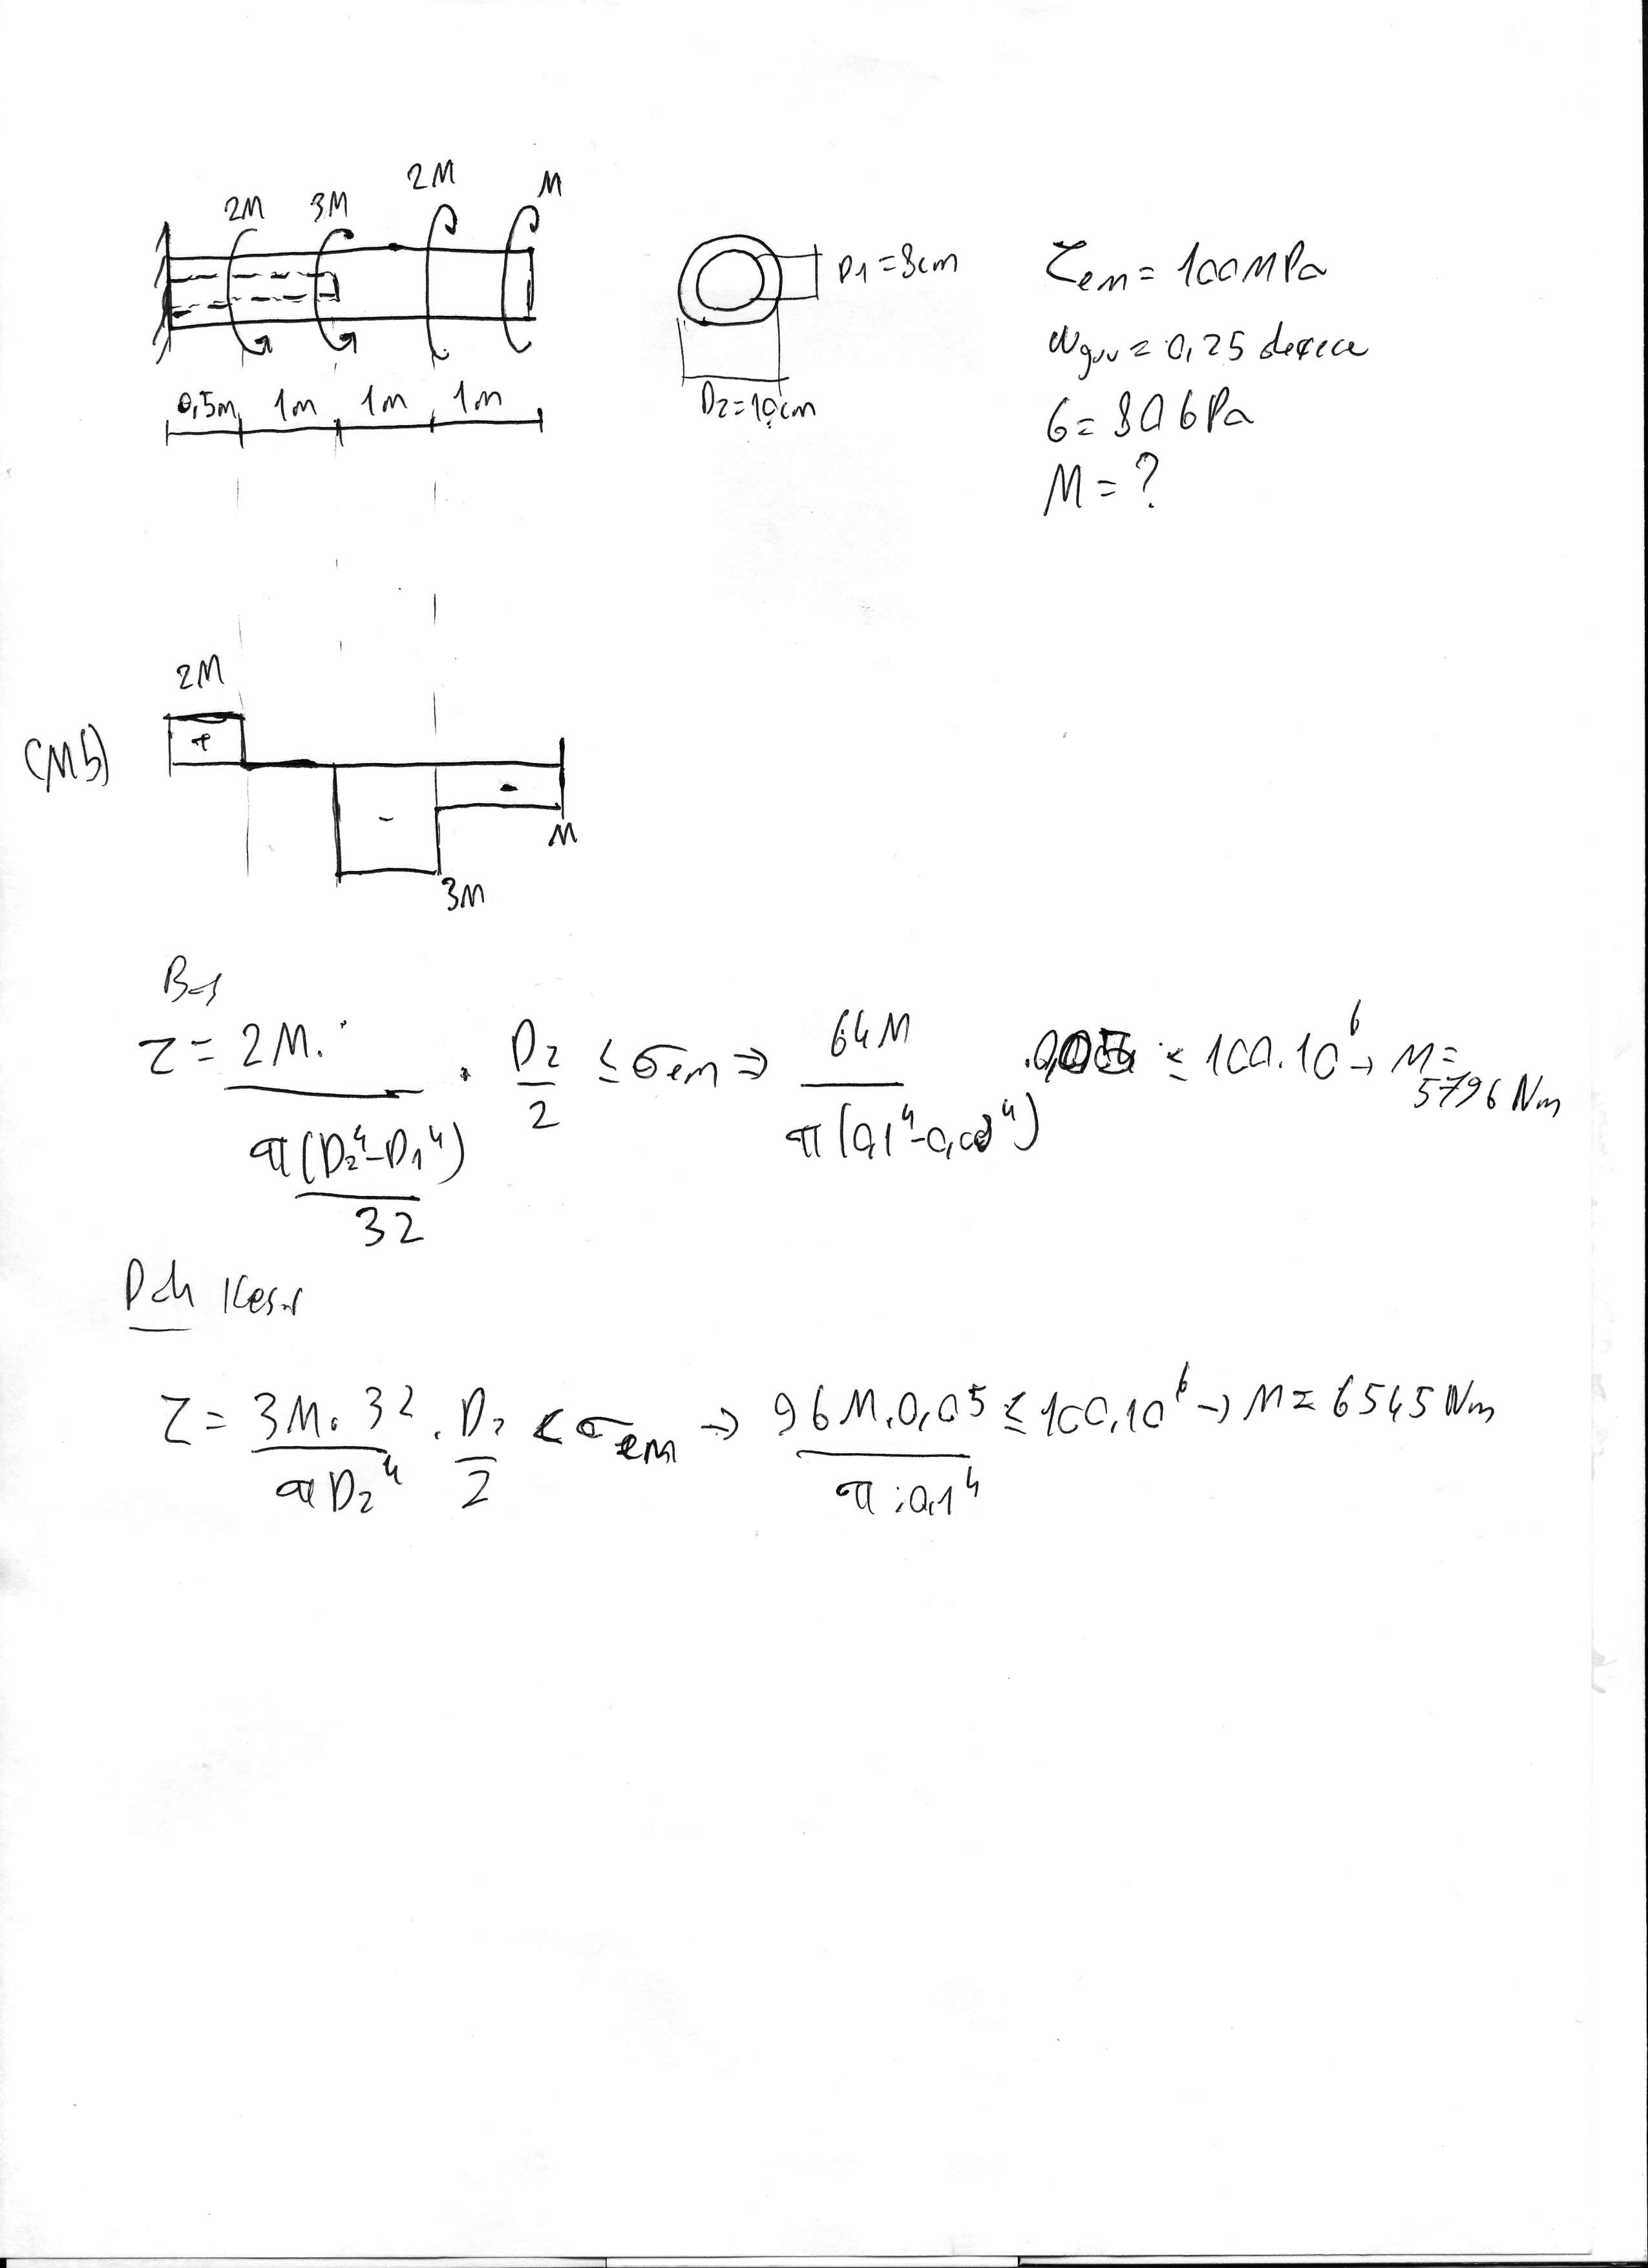 2M 3M 2M M
0,5m 1m 1m 1m
D1=8cm
D2=10cm
τem = 100MPa
= 0,25 derece
G= 80GPa
M = ?
2M
+
(Mb)
-
-
M
3M
τ = 2M. / (π(D2⁴-D1⁴)/32) . D2/2 ≤ σem ⇒ 64M / π(0,1⁴-0,08⁴) .0,05 ≤ 100.10⁶ → M= 5796 Nm
τ = 3M.32 / πD2⁴ . D2/2 < σem → 96M.0,05 / π.0,1⁴ ≤ 100.10⁶ → M = 6545 Nm